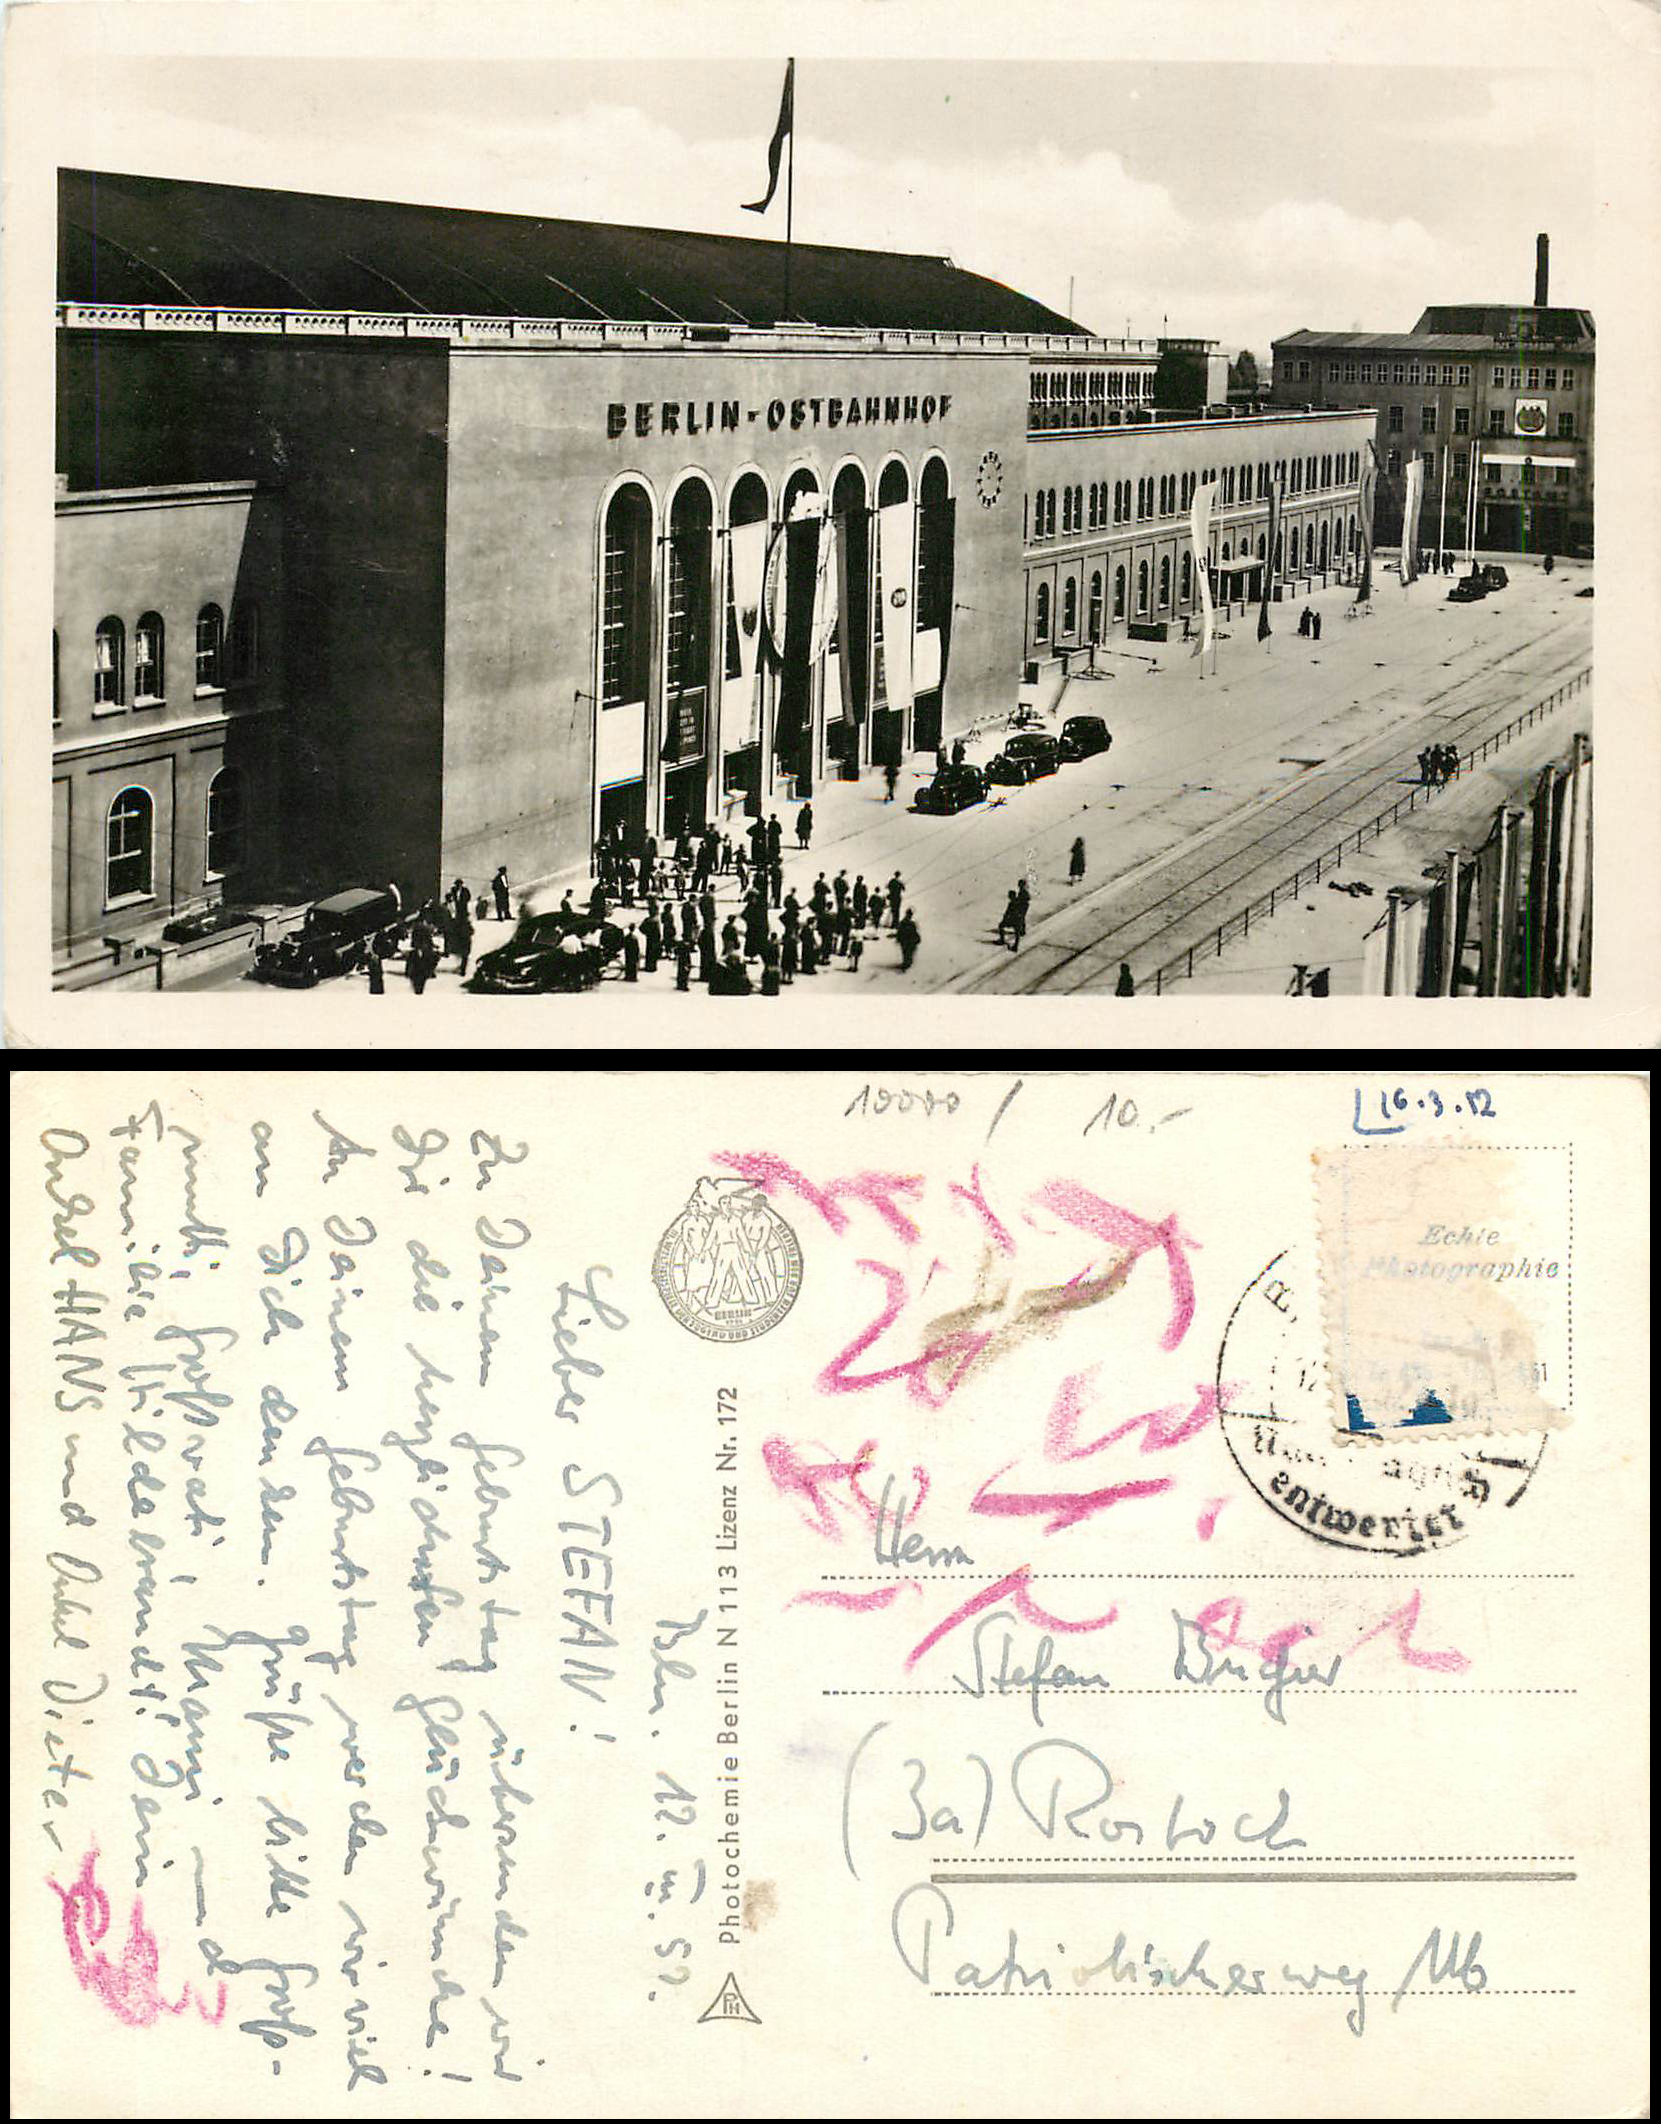 BERLIN-OSTBAHNHOF
10000 / 10.-
16.3.52
Echte
Photographie
entwertet
BERLIN
Photochemie Berlin N 113 Lizenz Nr. 172
Bln. 12. III. 52.
Lieber STEFAN!
Zu Deinem Geburtstag übersenden wir
Dir die herzlichsten Glückwünsche!
An Deinem Geburtstag werden wir viel
an Dich denken. Grüße bitte Groß-
mutti, Großvati, Mami und
Familie Hildebrandt! Dein
Onkel HANS und Onkel Dieter
Herrn
Stefan
(3a) Rostock
Patriotischerweg